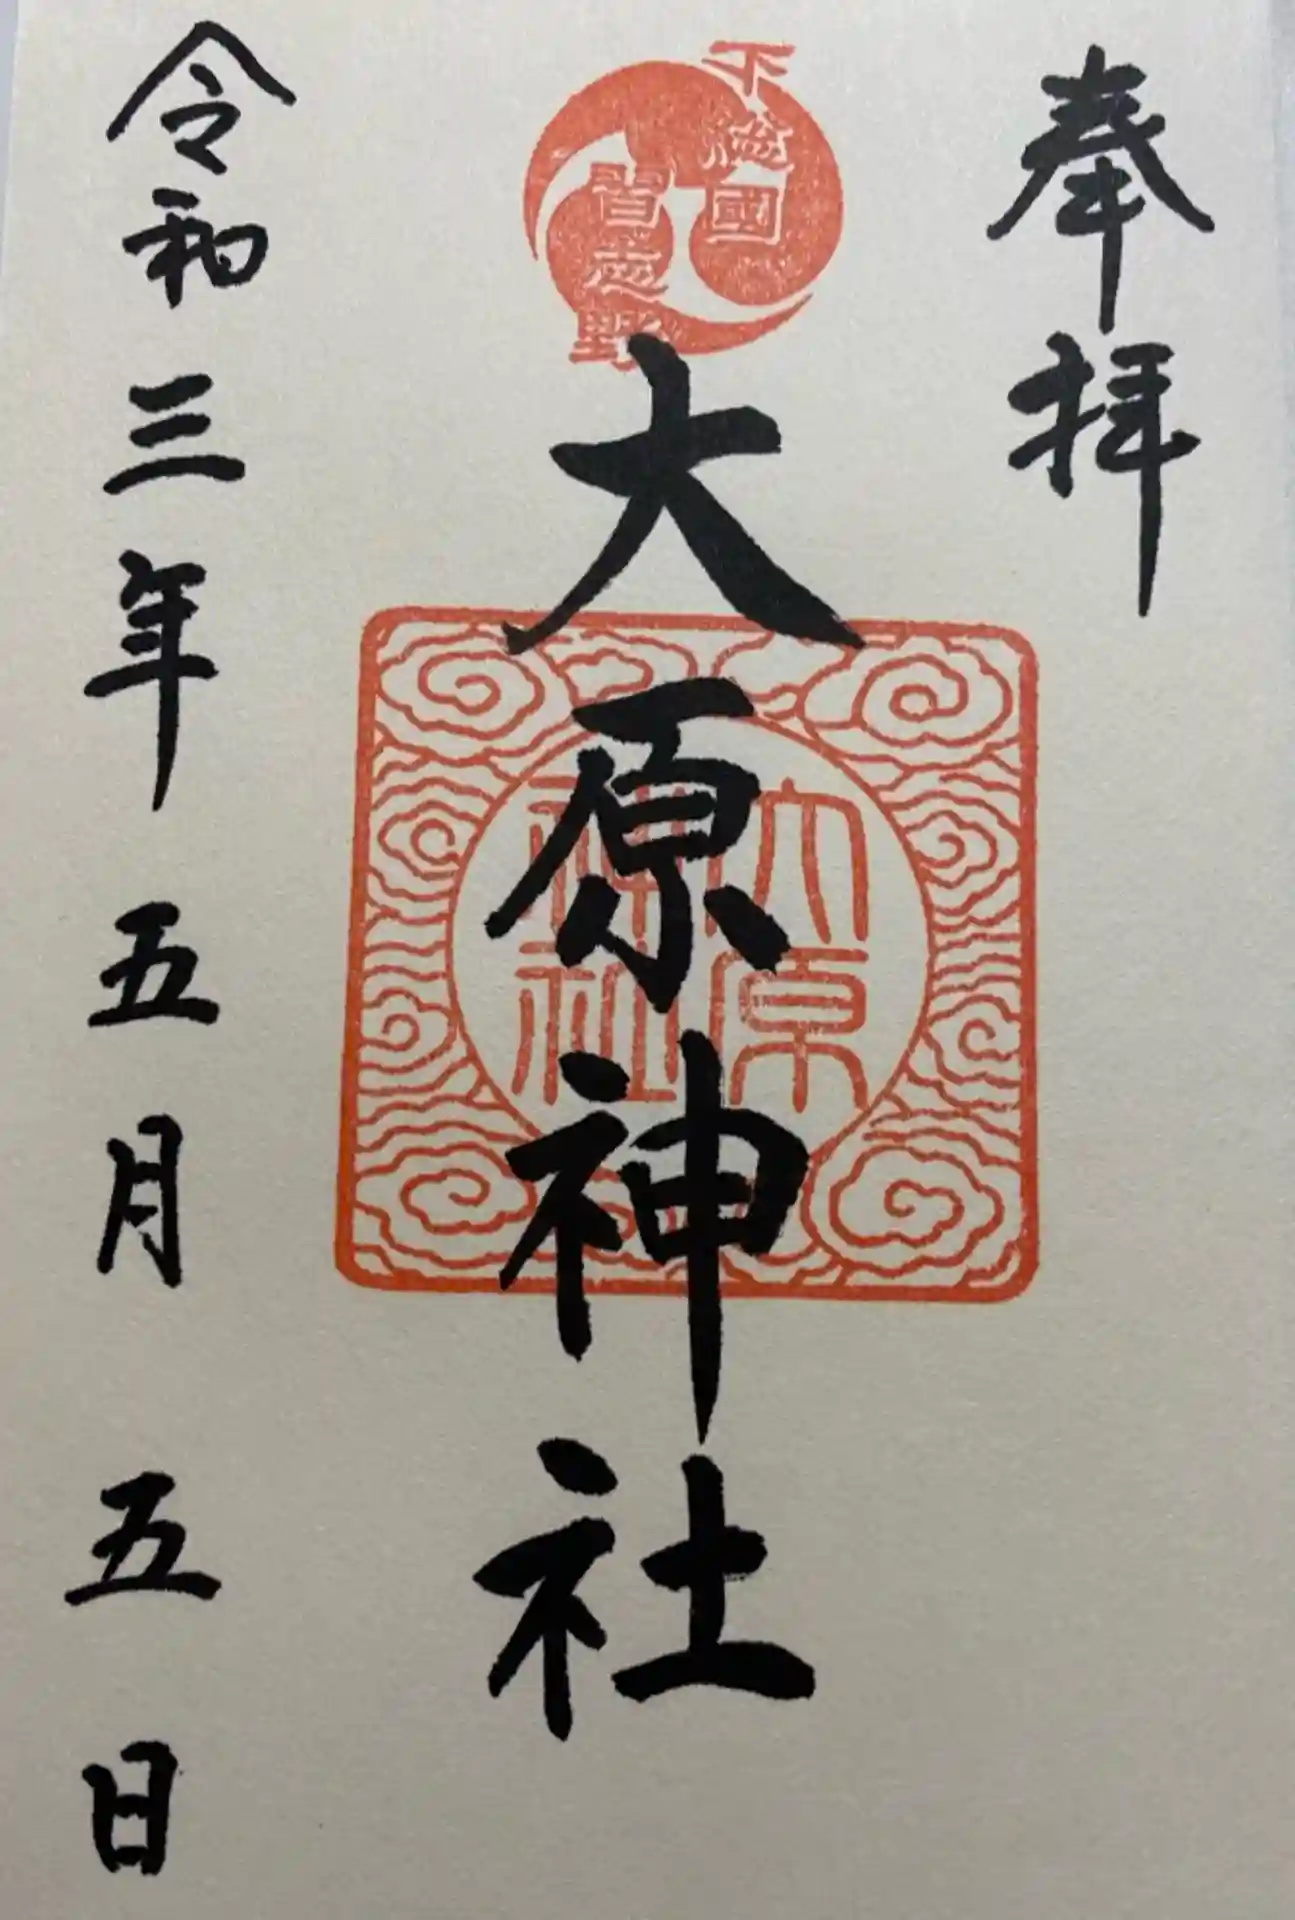 奉拝
下總國
習志野
大原神社
大原
神社
令和三年五月五日